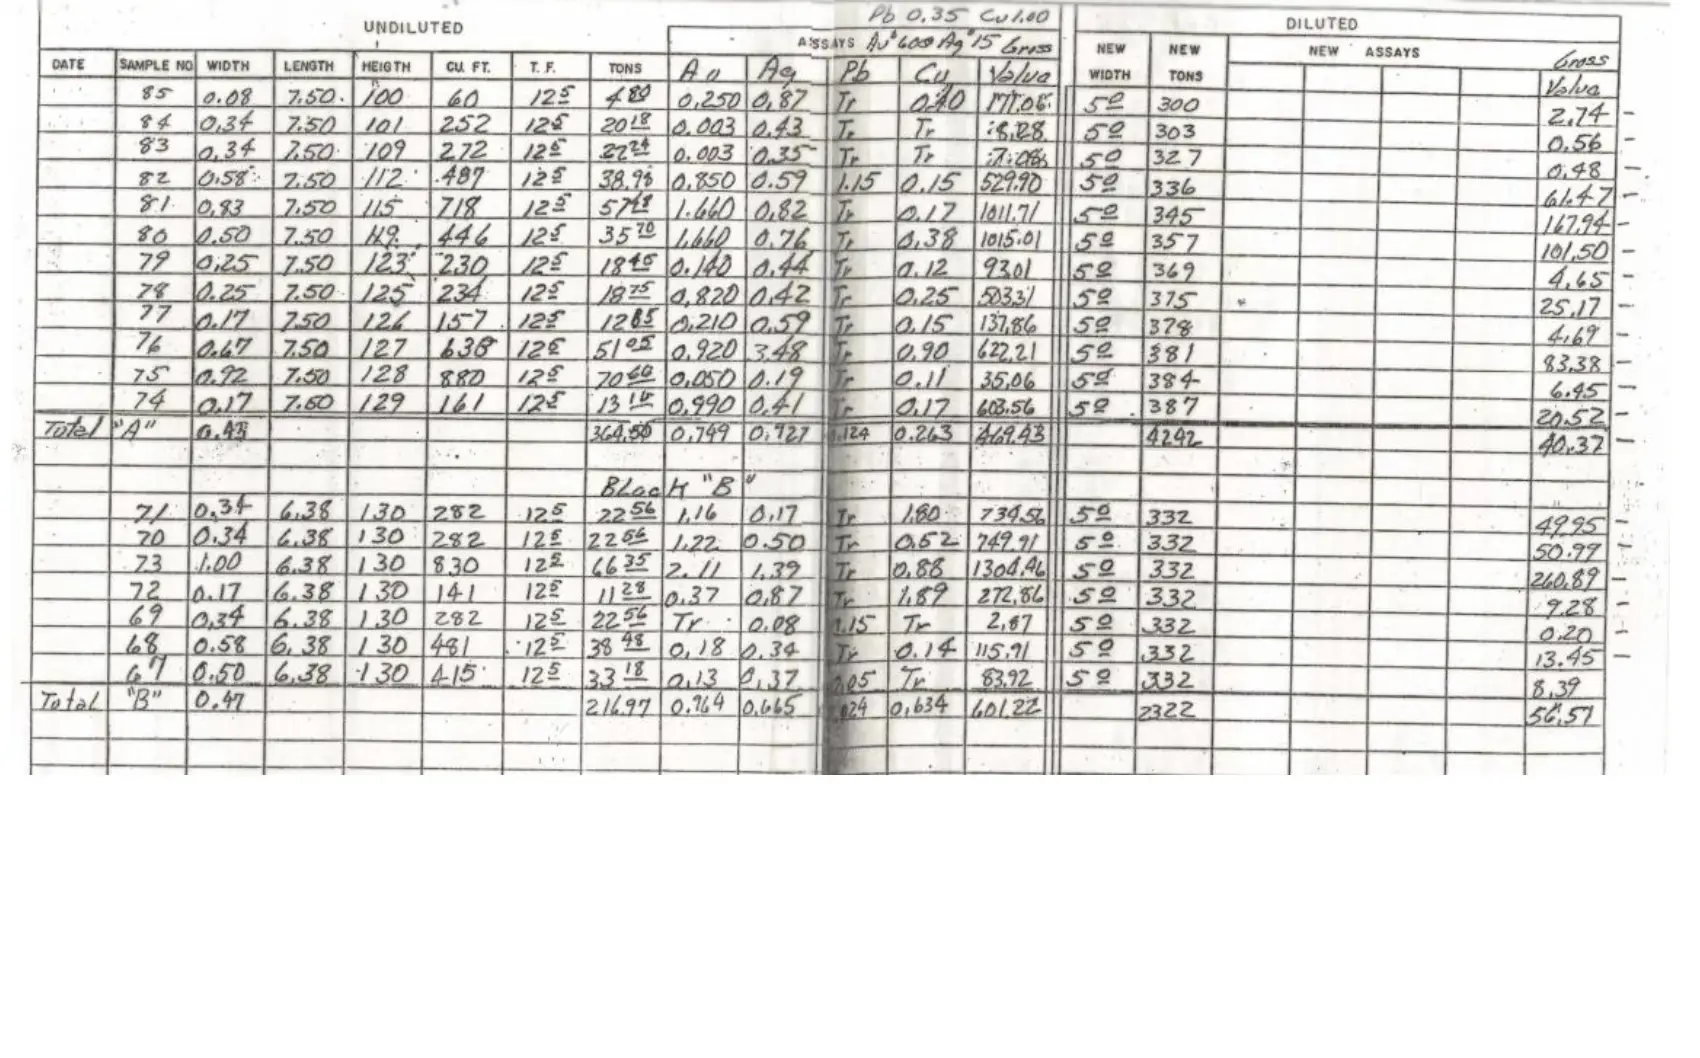 Pb 0.35 Cu 1.00
UNDILUTED DILUTED
ASSAYS Au $600 Ag $15 Gross NEW NEW NEW ASSAYS Gross
DATE SAMPLE NO WIDTH LENGTH HEIGTH CU. FT. T. F. TONS Au Ag Pb Cu Value WIDTH TONS Value
85 0.08 7.50 100 60 12⁵ 4⁸⁰ 0.250 0.87 Tr 0.40 5⁰ 300 2.74 -
84 0.34 7.50 101 252 12⁵ 20¹⁸ 0.003 0.43 Tr Tr 8.28 5⁰ 303 0.56 -
83 0.34 7.50 109 272 12⁵ 0.003 0.35 Tr Tr 7.08 5⁰ 327 0.48 -
82 0.58 7.50 112 487 12⁵ 38.98 0.850 0.59 1.15 0.15 529.90 5⁰ 336 61.47 -
81 0.83 7.50 115 718 12⁵ 1.660 0.82 Tr 0.17 1011.71 5⁰ 345 167.94 -
80 0.50 7.50 119 446 12⁵ 35⁷⁰ 1.660 0.76 Tr 0.38 1015.01 5⁰ 357 101.50 -
79 0.25 7.50 123 230 12⁵ 18⁴⁵ 0.140 0.44 Tr 0.12 93.01 5⁰ 369 4.65 -
78 0.25 7.50 125 234 12⁵ 18⁷⁵ 0.820 0.42 Tr 0.25 503.31 5⁰ 375 25.17 -
77 0.17 7.50 126 157 12⁵ 12⁸⁵ 0.210 0.59 Tr 0.15 137.86 5⁰ 378 4.69 -
76 0.67 7.50 127 638 12⁵ 51⁰⁵ 0.920 3.48 Tr 0.90 622.21 5⁰ 381 83.38 -
75 0.92 7.50 128 880 12⁵ 70⁶⁰ 0.050 0.19 Tr 0.11 35.06 5⁰ 384 6.45 -
74 0.17 7.50 129 161 12⁵ 0.990 0.41 Tr 0.17 603.56 5⁰ 387 20.52 -
Total "A" 0.43 364.50 0.749 0.927 .124 0.263 469.43 4242 40.37 -
Block "B"
71 0.34 6.38 130 282 12⁵ 22⁵⁶ 1.16 0.17 Tr 1.80 734.56 5⁰ 332 49.95 -
70 0.34 6.38 130 282 12⁵ 22⁵⁶ 1.22 0.50 Tr 0.52 749.91 5⁰ 332 50.99 -
73 1.00 6.38 130 830 12⁵ 66³⁵ 2.11 1.39 Tr 0.88 1304.46 5⁰ 332 260.89 -
72 0.17 6.38 130 141 12⁵ 11²⁸ 0.37 0.87 Tr 1.89 272.86 5⁰ 332 9.28 -
69 0.34 6.38 130 282 12⁵ 22⁵⁶ Tr 0.08 .15 Tr 2.87 5⁰ 332 0.20 -
68 0.58 6.38 130 481 12⁵ 38⁴⁸ 0.18 0.34 Tr 0.14 115.91 5⁰ 332 13.45 -
67 0.50 6.38 130 415 12⁵ 33¹⁸ 0.13 0.37 .05 Tr 83.92 5⁰ 332 8.39
Total "B" 0.47 216.97 0.964 0.665 .024 0.634 601.22 2322 56.51